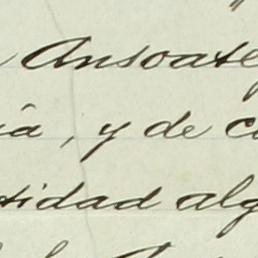 Ansoate
ia, y de c
tidad alg